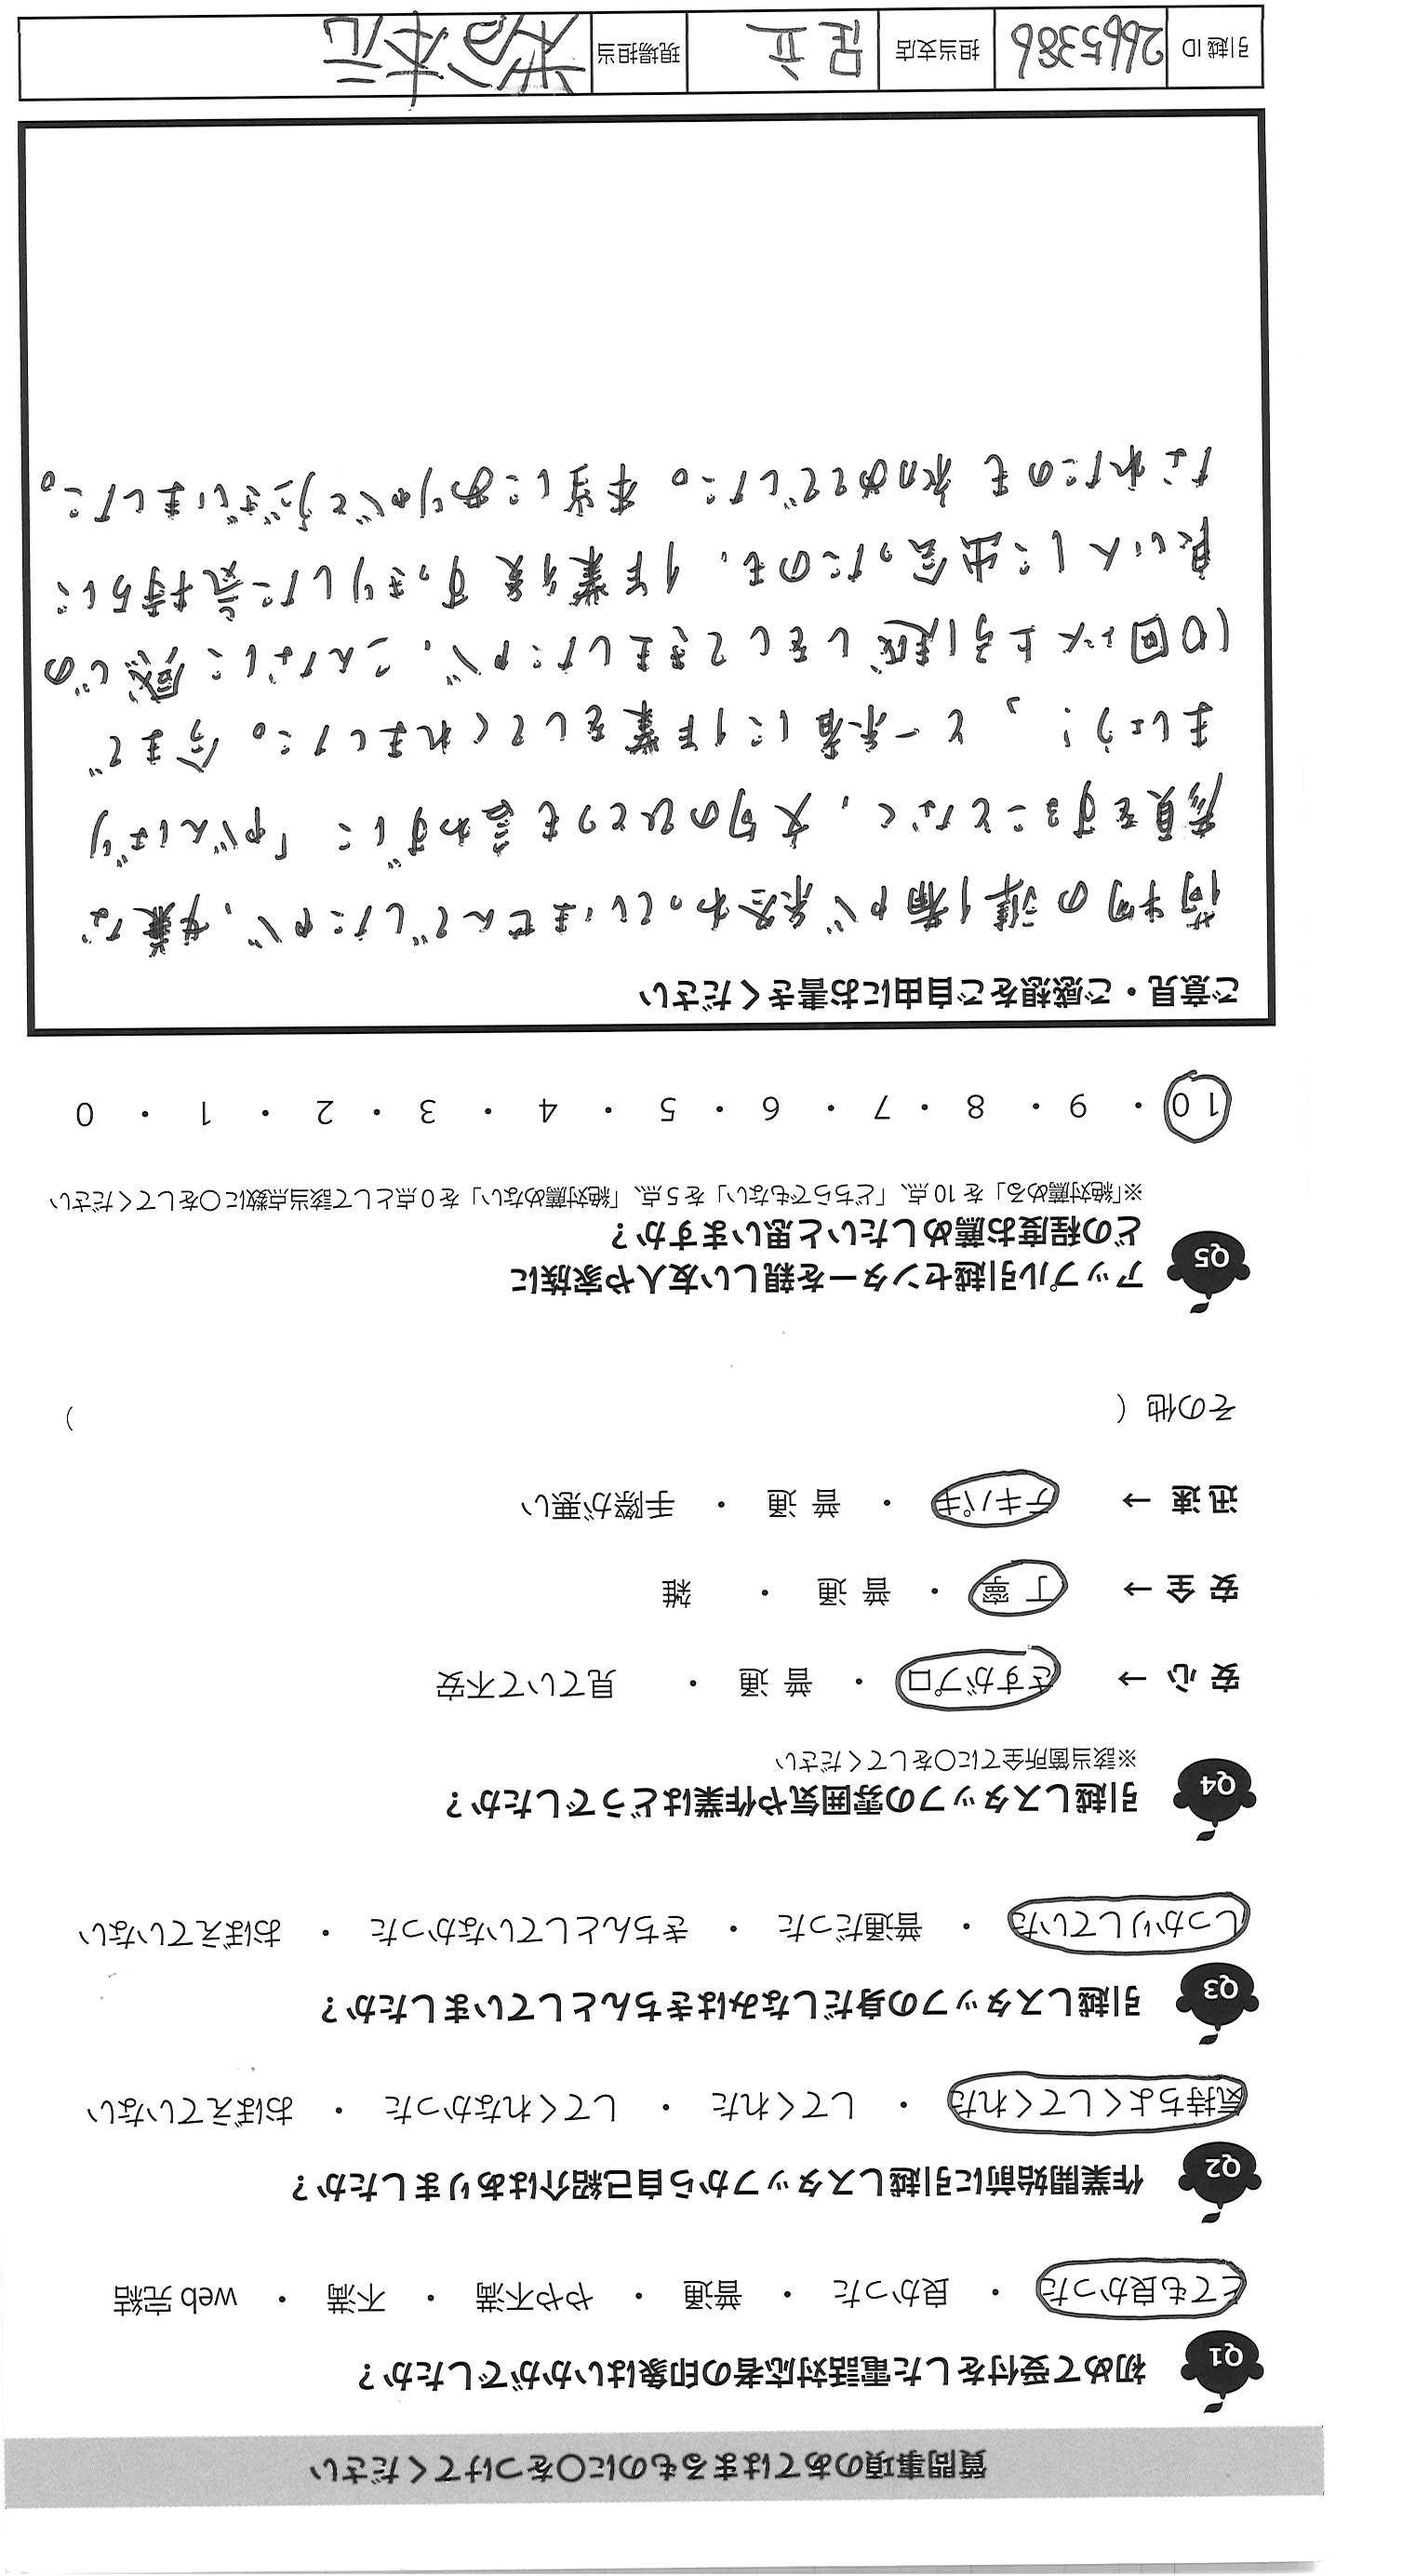 質問事項のあてはまるものに○をつけてください
Q1 初めて受付をした電話対応者の印象はいかがでしたか？
とても良かった ・ 良かった ・ 普通 ・ やや不満 ・ 不満 ・ web 完結
Q2 作業開始前に引越しスタッフから自己紹介はありましたか？
気持ちよくしてくれた ・ してくれた ・ してくれなかった ・ おぼえていない
Q3 引越しスタッフの身だしなみはきちんとしていましたか？
しっかりしていた ・ 普通だった ・ きちんとしていなかった ・ おぼえていない
Q4 引越しスタッフの雰囲気や作業はどうでしたか？
※該当箇所全てに○をしてください
安 心 → さすがプロ ・ 普 通 ・ 見ていて不安
安 全 → 丁 寧 ・ 普 通 ・ 雑
迅 速 → テキパキ ・ 普 通 ・ 手際が悪い
その他（ ）
Q5 アップル引越センターを親しい友人や家族に
どの程度お薦めしたいと思いますか？
※「絶対薦める」を 10 点、「どちらでもない」を 5 点、「絶対薦めない」を 0 点として該当点数に○をしてください
10 ・ 9 ・ 8 ・ 7 ・ 6 ・ 5 ・ 4 ・ 3 ・ 2 ・ 1 ・ 0
ご意見・ご感想をご自由にお書きください
荷物の準備が終わっていませんでしたが、嫌な
顔をすることなく、文句のひとつも言わずに「がんばり
ましょう！」と一緒に作業をしてくれました。今まで
10回以上引越しをしてきましたが、こんなに感じの
良い人に出会ったのも、作業後すっきりした気持ちに
なれたのも初めてでした。本当にありがとうございました。
引越 ID 2665386 担当支店 足立 現場担当